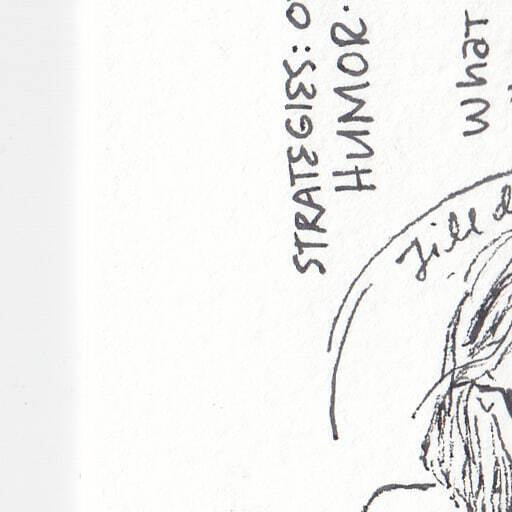 STRATEGIES:
HUMOR.
What
Jill